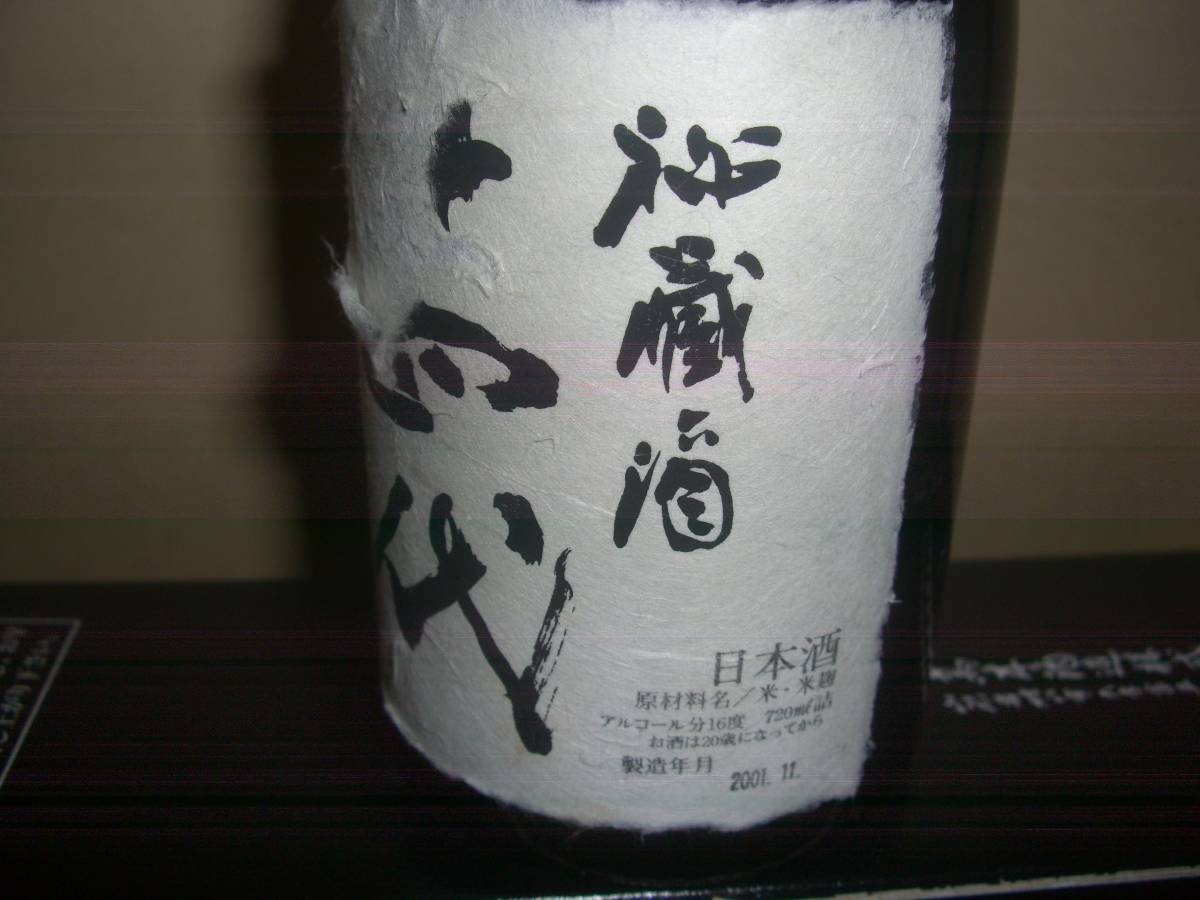 秘蔵酒
十四代
日本酒
原材料名／米・米麹
アルコール分16度 720ml詰
お酒は20歳になってから
製造年月 2001.11.